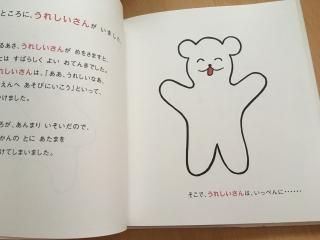 ところに、うれしいさんが いました。
るあさ、うれしいさんが めをさますと、
とは すばらしく よい おてんきでした。
れしいさんは、「ああ、うれしいなあ、
えんへ あそびにいこう」といって、
けました。
ろが、あんまり いそいだので、
かんの とに あたまを
けてしまいました。
そこで、うれしいさんは、いっぺんに・・・・・・